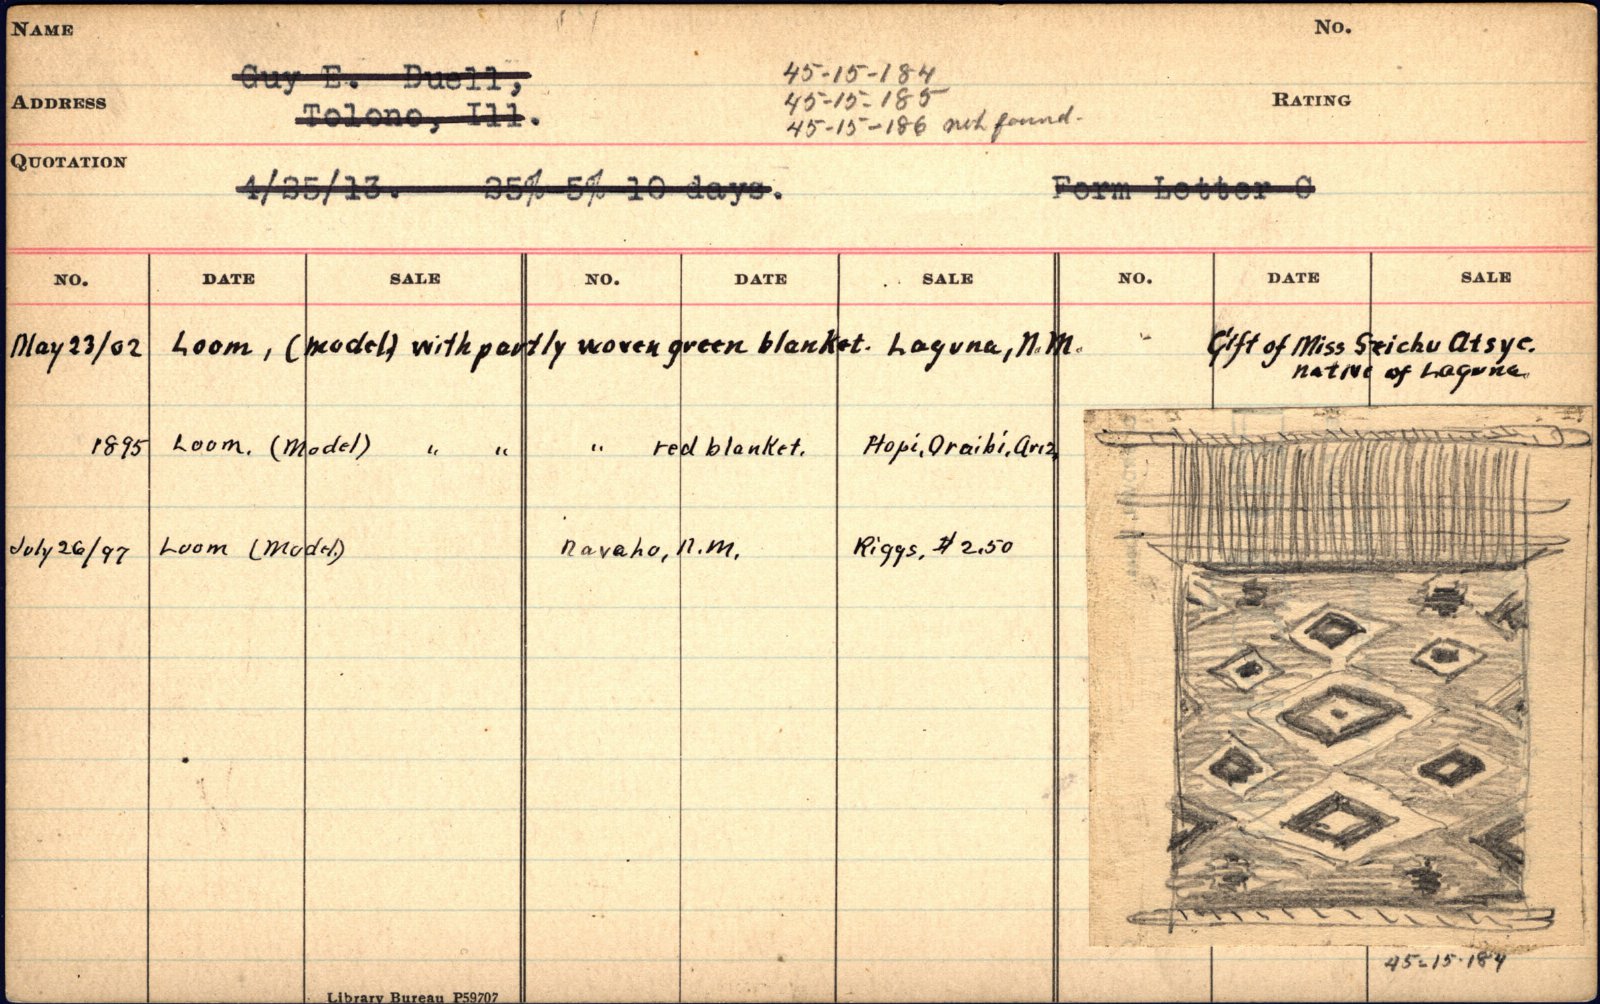 NAME
No.
Guy E. Duell,
45-15-184
ADDRESS
45-15-185
RATING
Tolono, Ill.
45-15-186 not found.
QUOTATION
4/25/13. 25%-5% 10 days.
Form Letter C
NO. DATE SALE NO. DATE SALE NO. DATE SALE
May 23/02 Loom, (model) with partly woven green blanket. Laguna, N.M. Gift of Miss Seichu Atsye.
native of Laguna.
1895 Loom. (Model) " " " red blanket. Hopi, Oraibi, Ariz.
July 26/97 Loom (Model.) Navaho, N.M. Riggs, $2.50
45-15-184
Library Bureau P59707